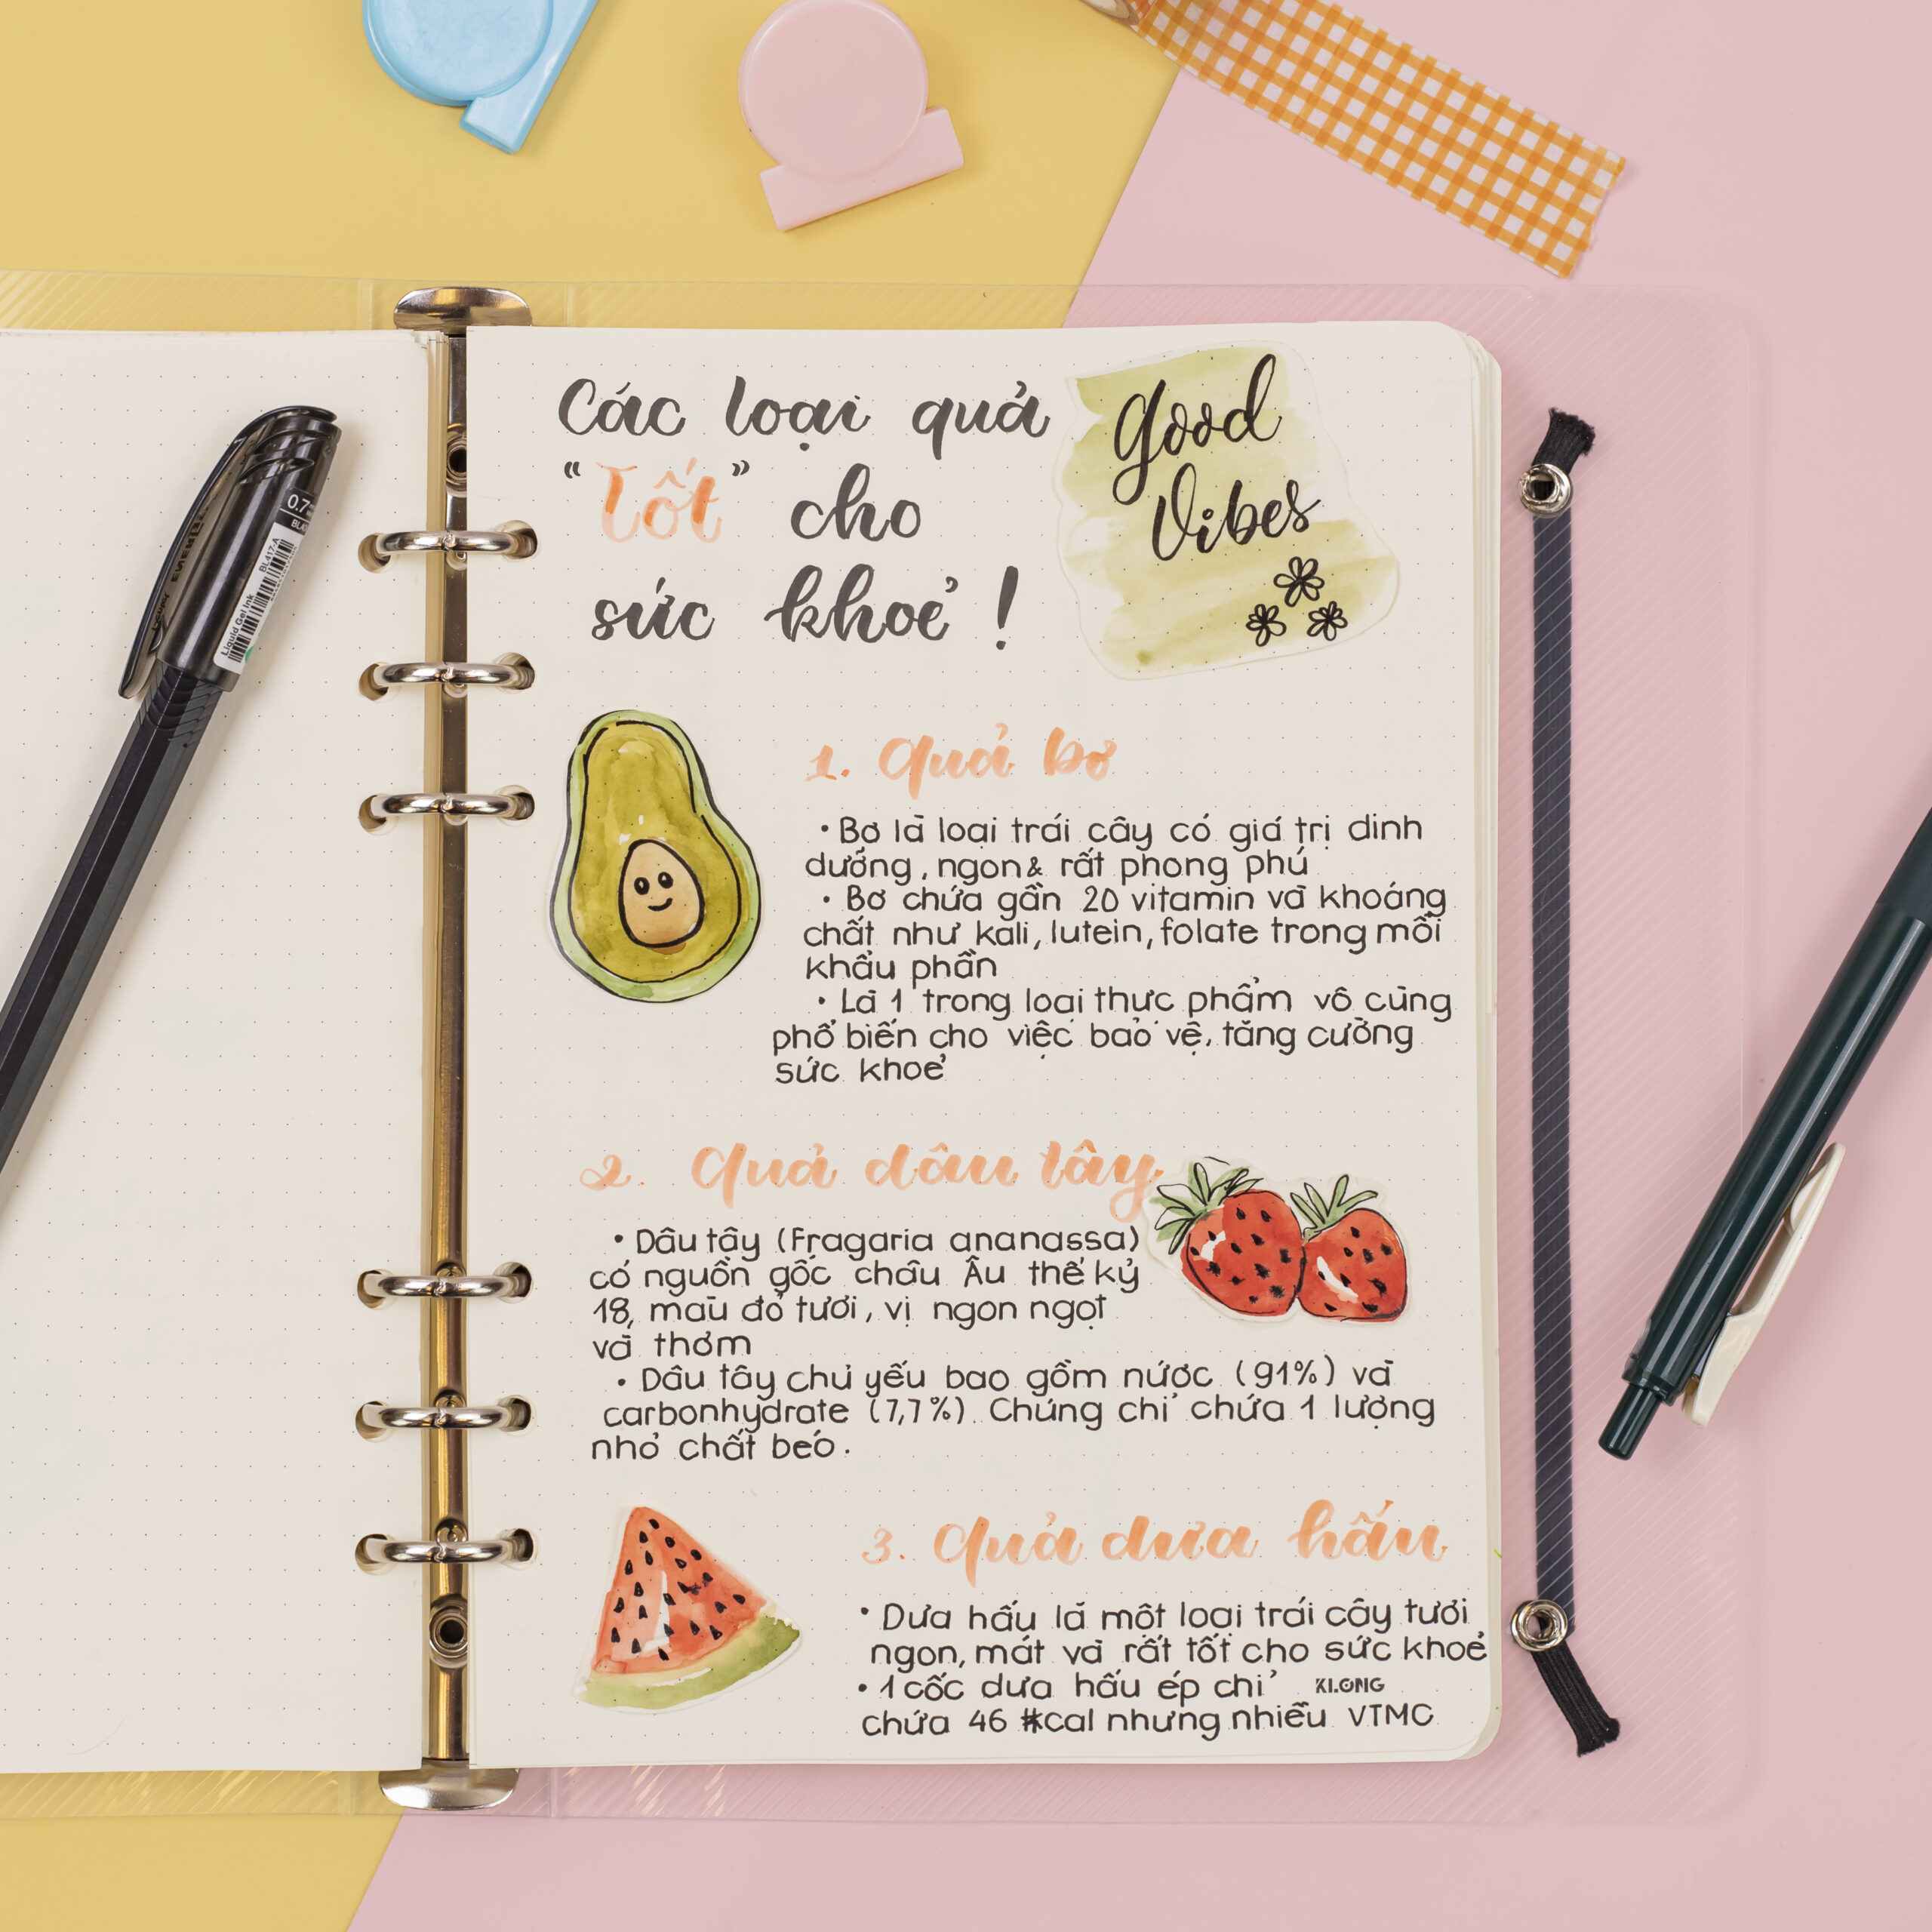 Các loại quả
"Tốt" cho
sức khoẻ !
Good
Vibes
1. Quả bơ
• Bơ là loại trái cây có giá trị dinh
dưỡng, ngon & rất phong phú
• Bơ chứa gần 20 vitamin và khoáng
chất như kali, lutein, folate trong mỗi
khẩu phần
• Là 1 trong loại thực phẩm vô cùng
phổ biến cho việc bảo vệ, tăng cường
sức khoẻ
2. Quả dâu tây
• Dâu tây (Fragaria ananassa)
có nguồn gốc châu Âu thế kỷ
18, màu đỏ tươi, vị ngon ngọt
và thơm
• Dâu tây chủ yếu bao gồm nước (91%) và
carbonhydrate (7,7%). Chúng chỉ chứa 1 lượng
nhỏ chất béo.
3. Quả dưa hấu
• Dưa hấu là một loại trái cây tươi
ngon, mát và rất tốt cho sức khoẻ
• 1 cốc dưa hấu ép chỉ
KLONG
chứa 46 kcal nhưng nhiều VTMC
0.7
BL417-A
Liquid Gel Ink